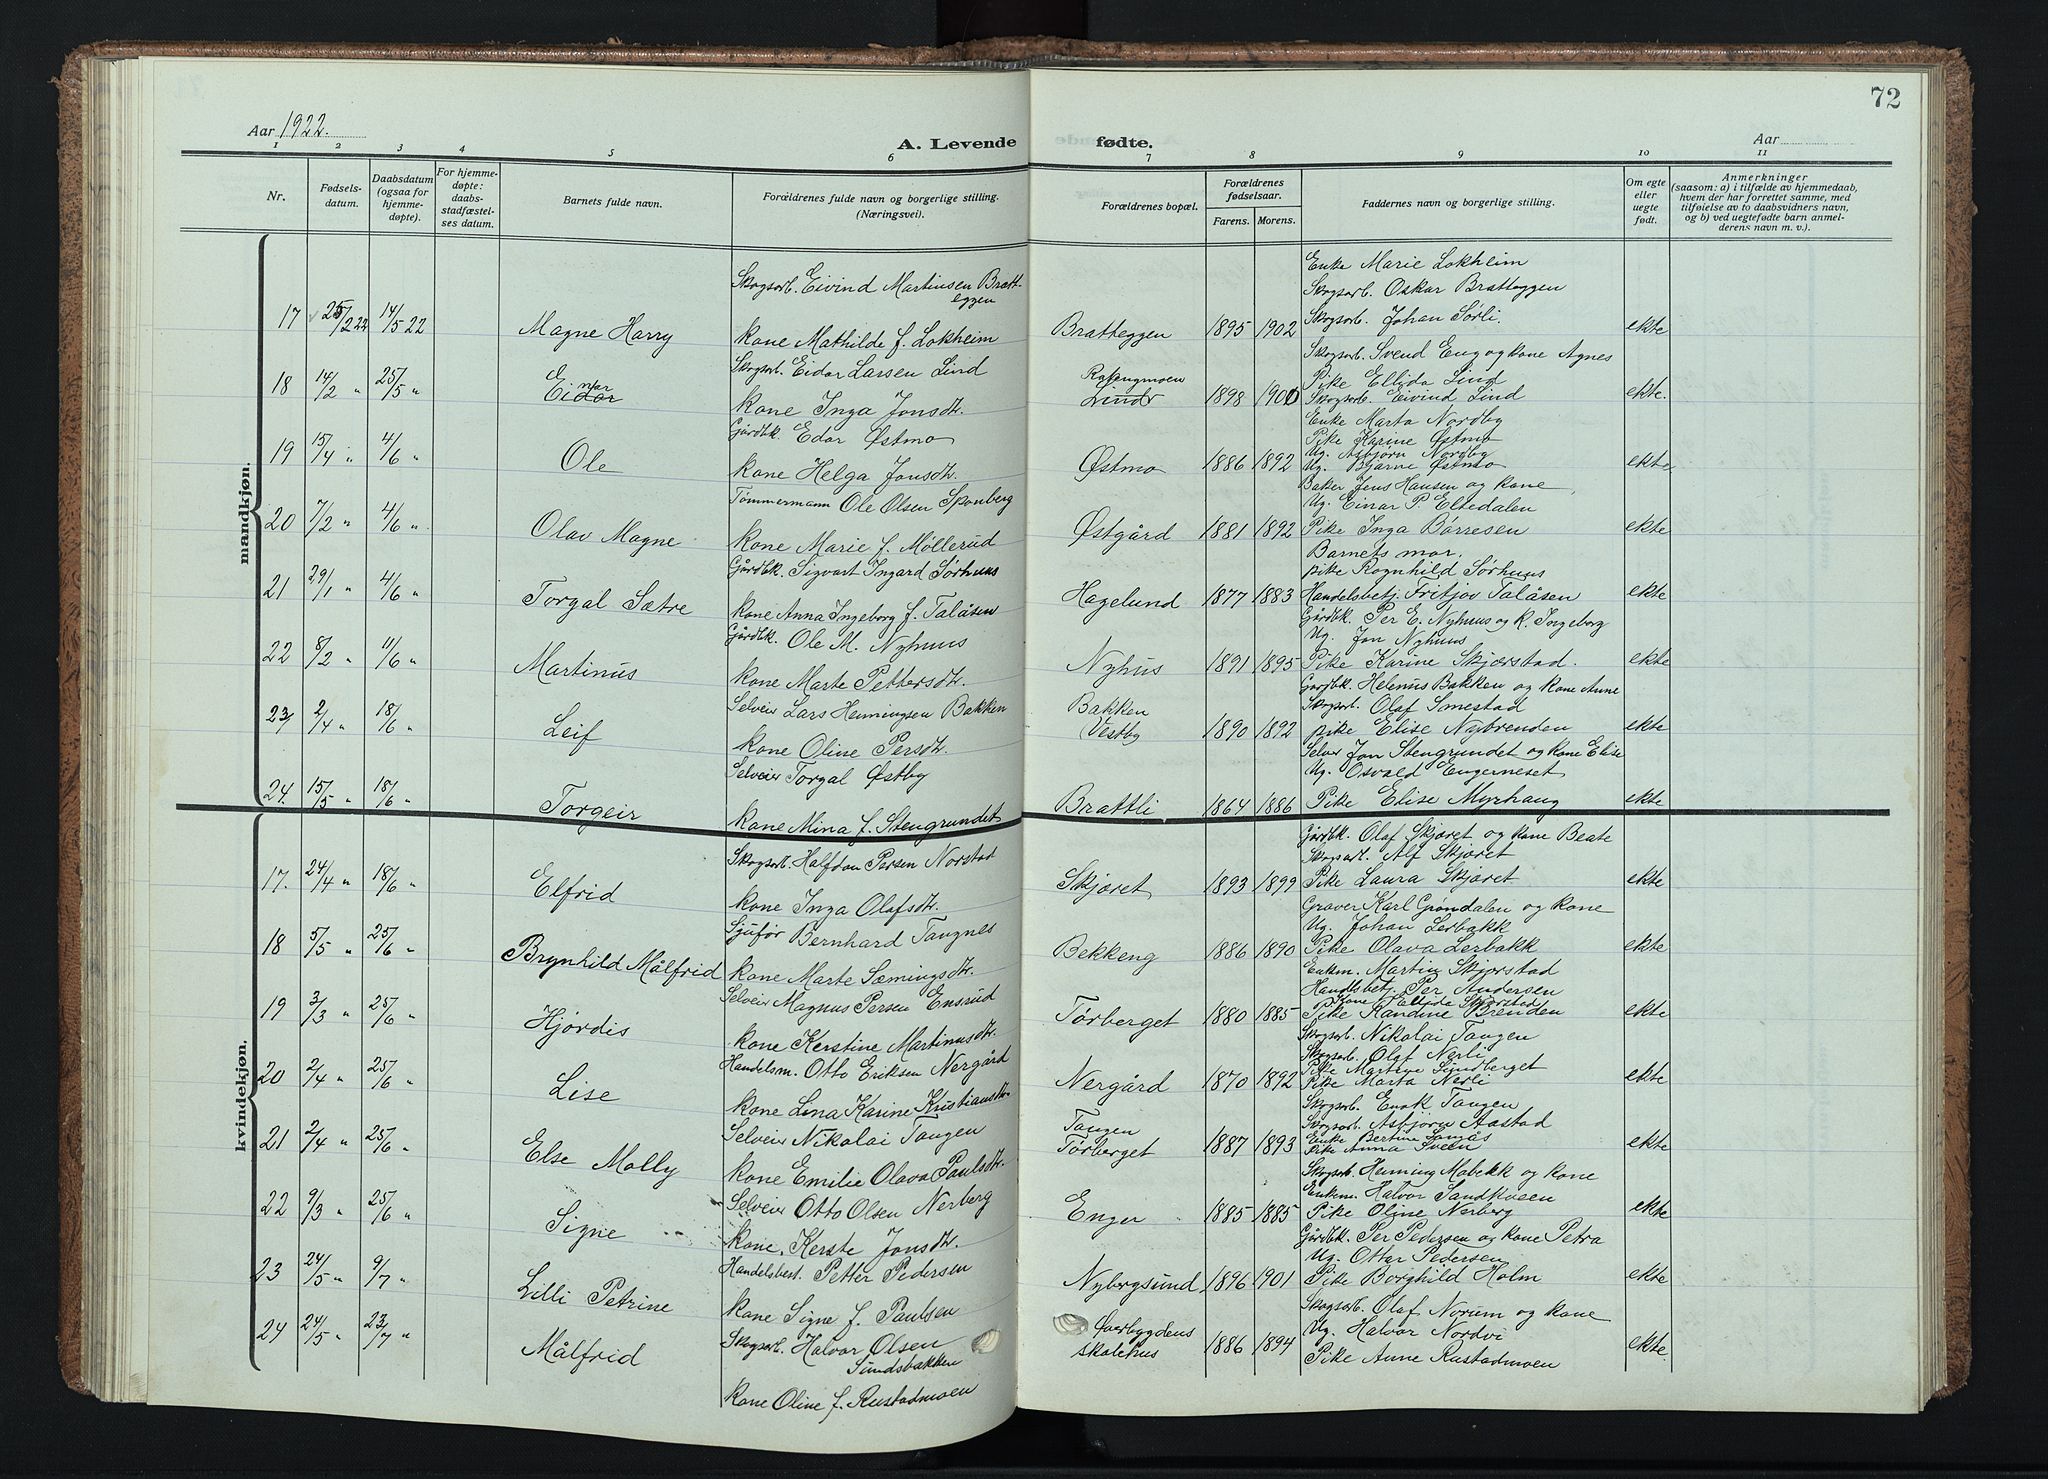 72
Aar 1922.
A. Levende fødte.
Aar
1 2 3 4 5 6 7 8 9 10 11
Nr.
Fødsels-datum.
Daabsdatum (ogsaa for hjemme-døpte).
For hjemme-døpte: daabs-stadfæstel-ses datum.
Barnets fulde navn.
Forældrenes fulde navn og borgerlige stilling. (Næringsvei).
Forældrenes bopæl.
Forældrenes fødselsaar.
Farens. Morens.
Faddernes navn og borgerlige stilling.
Om egte eller uegte født.
Anmerkninger (saasom: a) i tilfælde av hjemmedaab, hvem der har forrettet samme, med tilføielse av to daabsvidners navn, og b) ved uegtefødte barn anmel-derens navn m. v.).
mandkjøn.
Skogsarb. Eivind Martinsen Bratt-
eggen
Enke Marie Lokheim
Skogsarb. Oskar Bratteggen
Skogsarb. Johan Sørli.
17 25/2 22 14/5 22 Magne Harry kone Mathilde f. Lokheim Bratteggen 1895 1902 ekte
Skogsarb. Eidar Larsen Lind
Skogsarb. Svend Eng og kone Agnes
Pike Ellida Lind
18 14/2 " 25/5 " Einar kone Inga Jonsdtr. Lind 1898 1900 Skogsarb. Eivind Lind ekte.
Gårdbk. Edor Østmo
Enke Marta Nordby
Pike Karine Østmo
Ug. Asbjørn Nordby
19 15/4 " 4/6 " Ole kone Helga Jonsdtr. Østmo 1886 1892 Ug. Bjarne Østmo ekte
Tømmermann Ole Olsen Skonberg
Baker Jens Hansen og kone
Ug. Einar P. Eltedalen
20 7/2 " 4/6 " Olav Magne kone Marie f. Møllerud Østgård 1881 1892 Pike Inga Børresen ekte
Gårdbk. Sigvart Ingard Sørhuus
Barnets mor.
pike Ragnhild Sørhuus
21 29/1 " 4/6 " Torgal Sætre kone Anna Ingeborg f. Talåsen Hagelund 1877 1883 Handelsbetj. Fritjov Talåsen ekte
Gårdbk. Ole M. Nyhuus
Gårdbk. Per E. Nyhuus og k. Ingeborg
Ug. Jon Nyhuus
22 8/2 " 11/6 " Martinus kone Marte Pettersdtr. Nyhus 1891 1895 Pike Karine Skjærstad. ekte
Selveier Lars Henningsen Bakken
Gårdbk. Helenus Bakken og kone Anne
Skogsarb. Olaf Smestad
23 2/4 " 18/6 " Leif kone Oline Persdtr. Bakken Vestby 1890 1892 pike Elise Nybrenden ekte
Selveier Torgal Østby
Selveier Jon Stengrundet og kone Elise
Ug. Osvald Engerneset
24. 15/5 " 18/6 " Torgeir kone Mina f. Stengrundet Brattli 1864 1886 Pike Elise Myrhaug ekte
kvindekjøn.
Skogsarb. Halfdan Persen Norstad
Gårdbk. Olaf Skjæret og kone Beate
Skogsarb. Alf Skjæret
17. 24/4 " 18/6 " Elfrid kone Inga Olafsdtr. Skjæret 1893 1899 Pike Laura Skjæret ekte
Sjufør Bernhard Tangnes
Graver Karl Grøndalen og kone
Ug. Johan Lerbakk
18 5/5 " 25/6 " Brynhild Målfrid kone Marte Sæmingsdtr. Bekkeng 1886 1890 Pike Olava Lerbakk ekte
Selveier Magnus Persen Ensrud
Enkem. Martin Skjærstad
Handlsbetj. Per Andersen
19 3/3 " 25/6 " Hjørdis kone Kerstine Martinusdtr. Tørberget 1880 1885 Pike Kandine Brenden ekte
Handelsm. Otto Eriksen Nergård
Skogsarb. Nikolai Tangen
Skogsarb. Olaf Nerli
Pike Martine Sundberget
20 2/4 " 25/6 " Lise kone Lina Karine Kristiansdtr. Nergård 1870 1892 Pike Marta Nerli ekte
Selveier Nikolai Tangen
Skogsarb. Enok Tangen
Skogsarb. Asbjørn Aastad
Enke Bertine Langås
21 2/4 " 25/6 " Else Molly kone Emilie Olava Paulsdtr. Tangen Tørberget 1887 1893 Pike Anna Sveen ekte
Selveier Otto Olsen Nerberg
Skogsarb. Henning Mobekk og kone
Enkem. Halvor Sandkveen
22 9/3 " 25/6 " Signe kone Kerste Jonsdtr. Enger 1885 1885 Pike Oline Nerberg ekte
Handelsbest. Petter Pedersen
Gårdbk. Per Pedersen og kone Petra
Ug. Ottar Pedersen
23 24/5 " 9/7 " Lilli Petrine kone Signe f. Paulsen Nybergsund 1896 1901 Pike Borghild Holm ekte
Skogsarb. Halvor Olsen
Sundsbakken
Skogsarb. Olaf Norum og kone
Ug. Halvor Nordvi
24 24/5 " 23/7 " Målfrid kone Oline f. Rustadmoen Øverbygdens skolehus 1886 1894 Pike Anne Rustadmoen ekte.